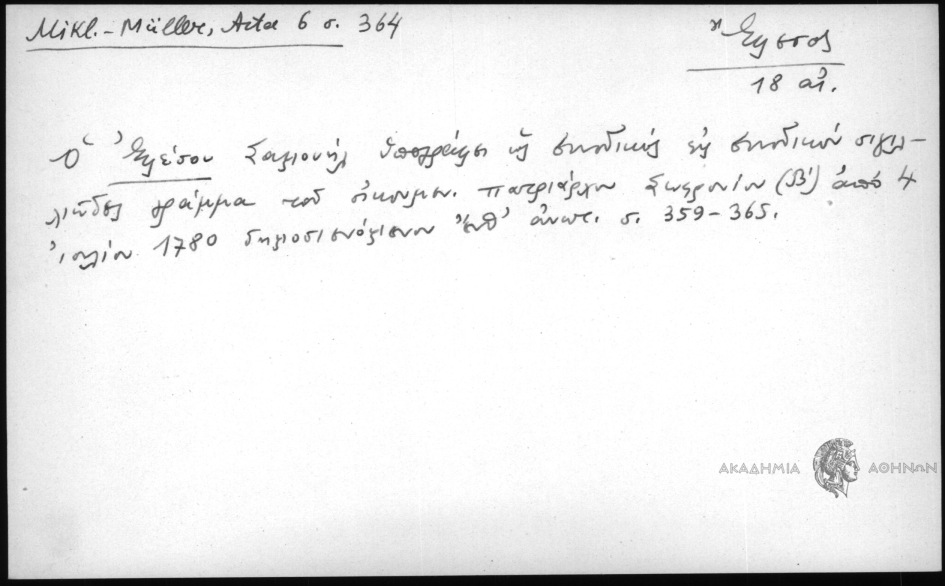 Mikl.-Müller, Acta 6 σ. 364
Ἔφεσος
18 αἰ.
Ὁ Ἐφέσου Σαμουήλ ὑπογράφει ὡς συνοδικός εἰς συνοδικόν σιγιλ-
λιῶδες γράμμα τοῦ οἰκουμεν. πατριάρχου Σωφρονίου (Β΄) ἀπό 4
Ἰουλίου 1780 δημοσιευόμενον ἐνθ᾽ ἀνωτ. σ. 359-365.
ΑΚΑΔΗΜΙΑ ΑΘΗΝΩΝ